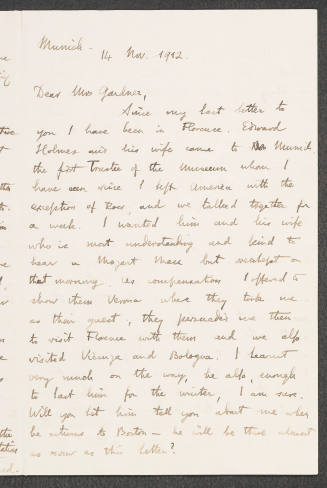 Munich -
14 Nov. 1912.
Dear Mrs Gardner,
Since my last letter to
you I have been in Florence. Edward
Holmes and his wife came to Munich
the first Trustee of the Museum whom I
have seen since I left America with the
exception of Ross, and we talked together for
a week. I wanted him and his wife
who is most understanding and kind to
hear a Mozart Mass but overslept on
that morning. As compensation I offered to
show them Verona where they took me
as their guest, they persuaded me then
to visit Florence with them and we also
visited Vicenza and Bologna. I learnt
very much on the way, he also, enough
to last him for the winter, I am sure.
Will you let him tell you about me when
he returns to Boston - he will be there almost
as soon as this letter?